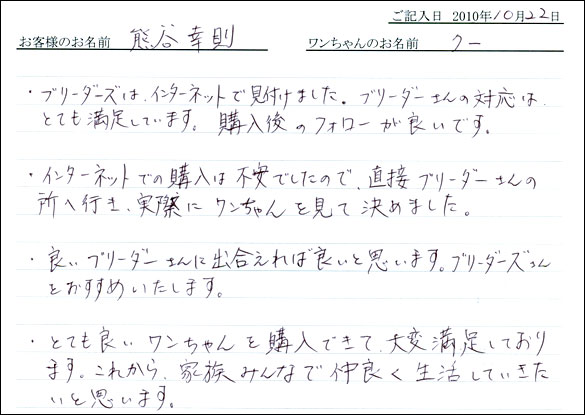 ご記入日 2010年10月22日
お客様のお名前 熊谷幸則 ワンちゃんのお名前 クー
・ブリーダーズは、インターネットで見付けました。ブリーダーさんの対応は、
とても満足しています。購入後のフォローが良いです。
・インターネットでの購入は不安でしたので、直接ブリーダーさんの
所へ行き、実際にワンちゃんを見て決めました。
・良いブリーダーさんに出合えれば良いと思います。ブリーダーズさん
をおすすめいたします。
・とても良いワンちゃんを購入できて、大変満足しており
ます。これから、家族みんなで仲良く生活していきた
いと思います。